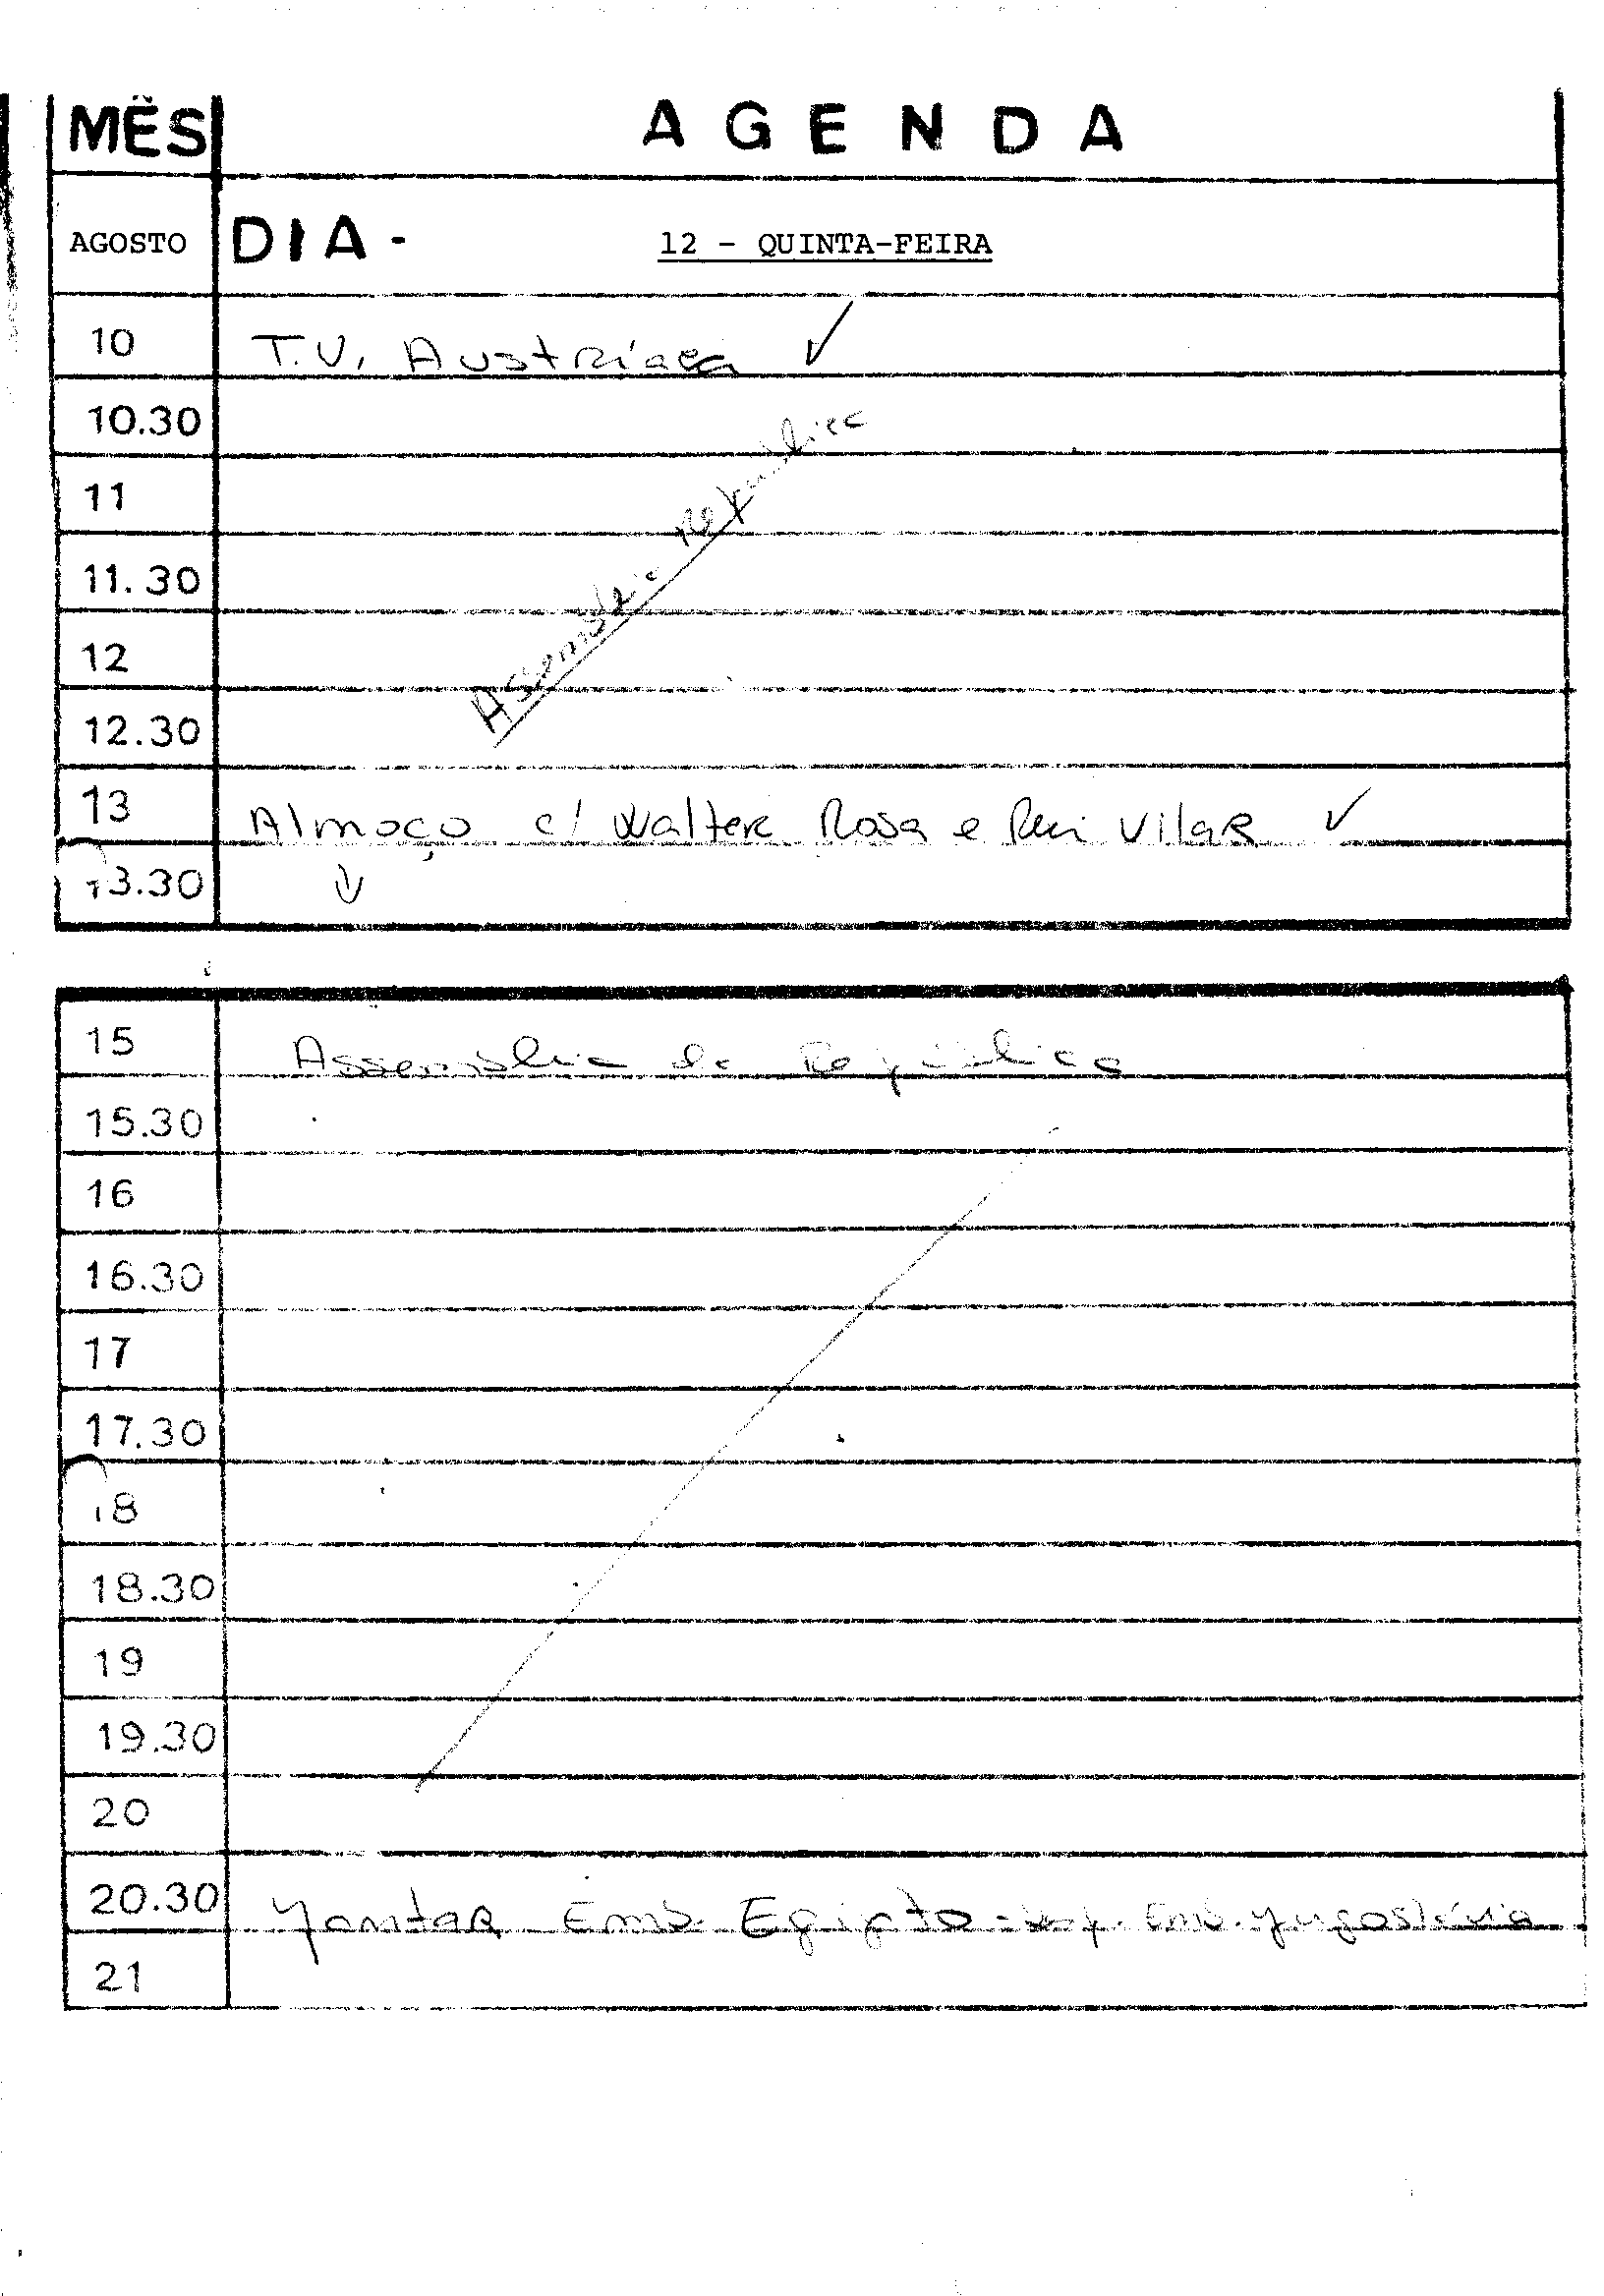 MÊS AGENDA
AGOSTO DIA - 12 - QUINTA-FEIRA
10 T.V. Austriaca ✓
10.30
11
11.30
12
Assembleia República
12.30
13 Almoço c/ Walter Rosa e Rui Vilar ✓
13.30
15 Assembleia da República
15.30
16
16.30
17
17.30
18
18.30
19
19.30
20
20.30 Jantar Emb. Egipto Emb. Yugoslávia
21